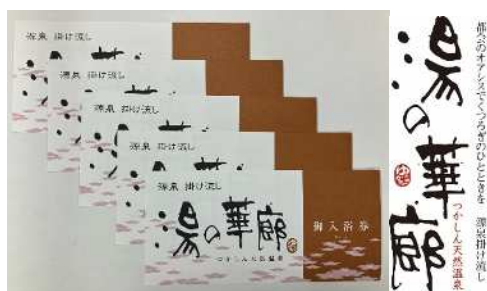 源泉 掛け流し
源泉 掛け流し
源泉 掛け流し
源泉 掛け流し
源泉 掛け流し
湯の華廊
つかしん天然温泉
御入浴券
都会のオアシスでくつろぎのひとときを 源泉掛け流し
湯の華廊
ゆ
つかしん天然温泉